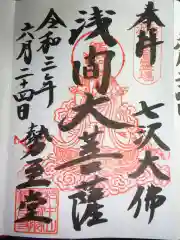 奉拝
七沢大佛
浅間大菩薩
令和三年
六月二十四日
勢至堂